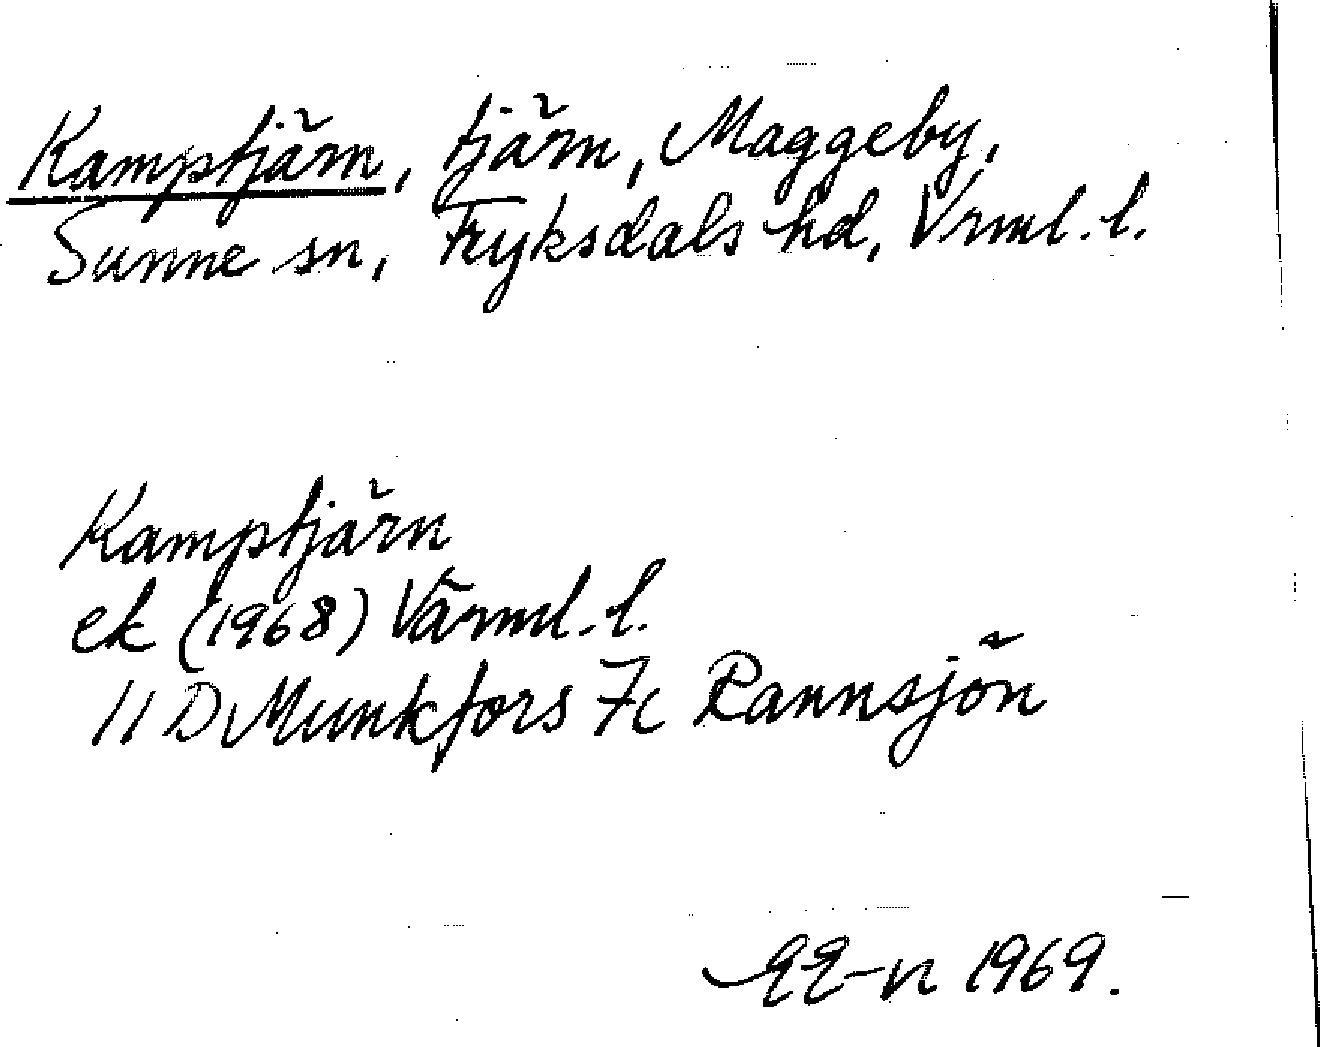 Kamptjärn, tjärn, Maggeby,
Sunne sn, Fryksdals hd, Vrml. l.
Kamptjärn
ek (1968) Värml. l.
11 D Munkfors 7c Rannsjön
1969.